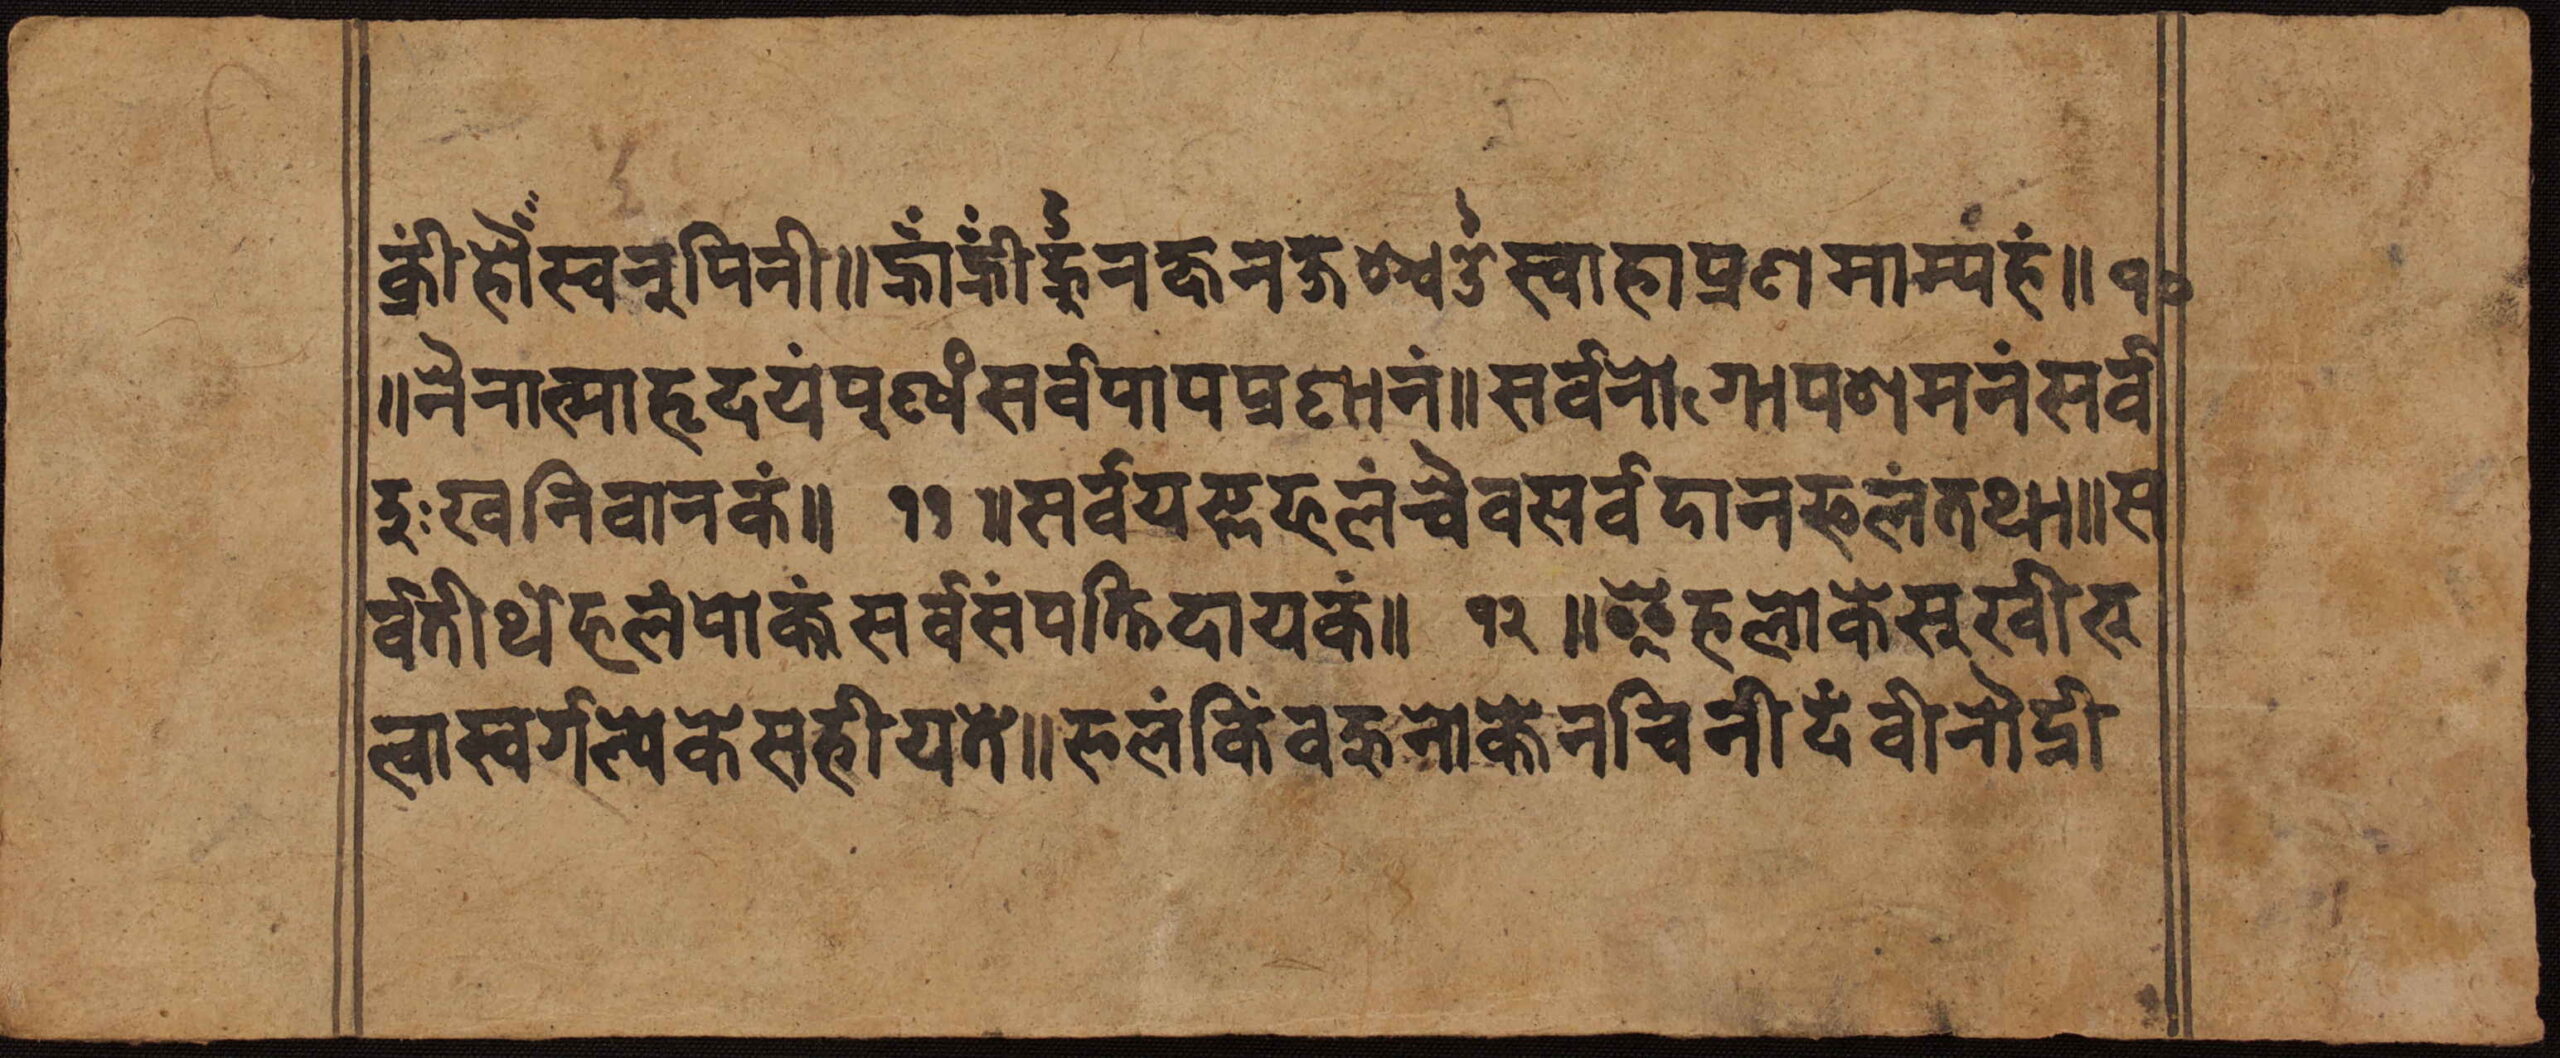 क्रीं ह्रौँ स्वनुपिनी॥ ह्राँ ह्रीँ ह्रुँ नक्ष नक्ष स्वाहा प्रणमाम्यहं॥ १०
॥ नैनात्मा हृदयं पुण्यं सर्व पाप प्रणानं॥ सर्व नोगापशमनं सर्व
दुःख निवानकं॥ ११ ॥ सर्व यज्ञ फलं चैव सर्व दान फलं तथा॥ स
र्व तीर्थ फलं पोक्तं सर्व संपत्ति दायकं॥ १२ ॥ इहलोके सुखी भु
त्वा स्वर्गलोके सहीयते॥ फलं किं वहुनोक्तेन चिनीदं वी नौद्री